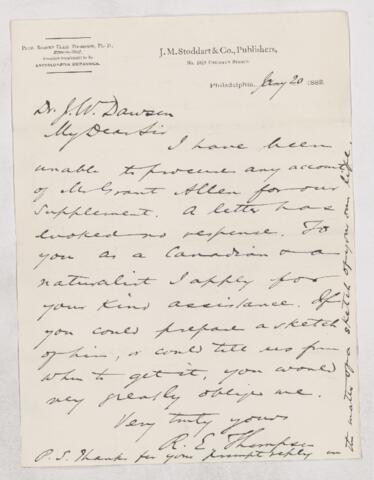 Prof. Robert Ellis Thompson, Ph. D.,
Editor-in-Chief,
American Supplement to the
Encyclopædia Britannica.
J. M. Stoddart & Co., Publishers,
No. 1018 Chestnut Street
Philadelphia, Jany 20 1882.
Dr. J. W. Dawson
My Dear Sir
I have been
unable to procure any account
of Mr Grant Allen for our
Supplement. A letter has
evoked no response. To
you as a Canadian & a
naturalist I apply for
your kind assistance. If
you could prepare a sketch
of him, or could tell us from
whom to get it, you would
very greatly oblige me.
Very truly yours
R. E. Thompson
P. S. Thanks for your prompt reply in
the matter of a sketch of your own life.